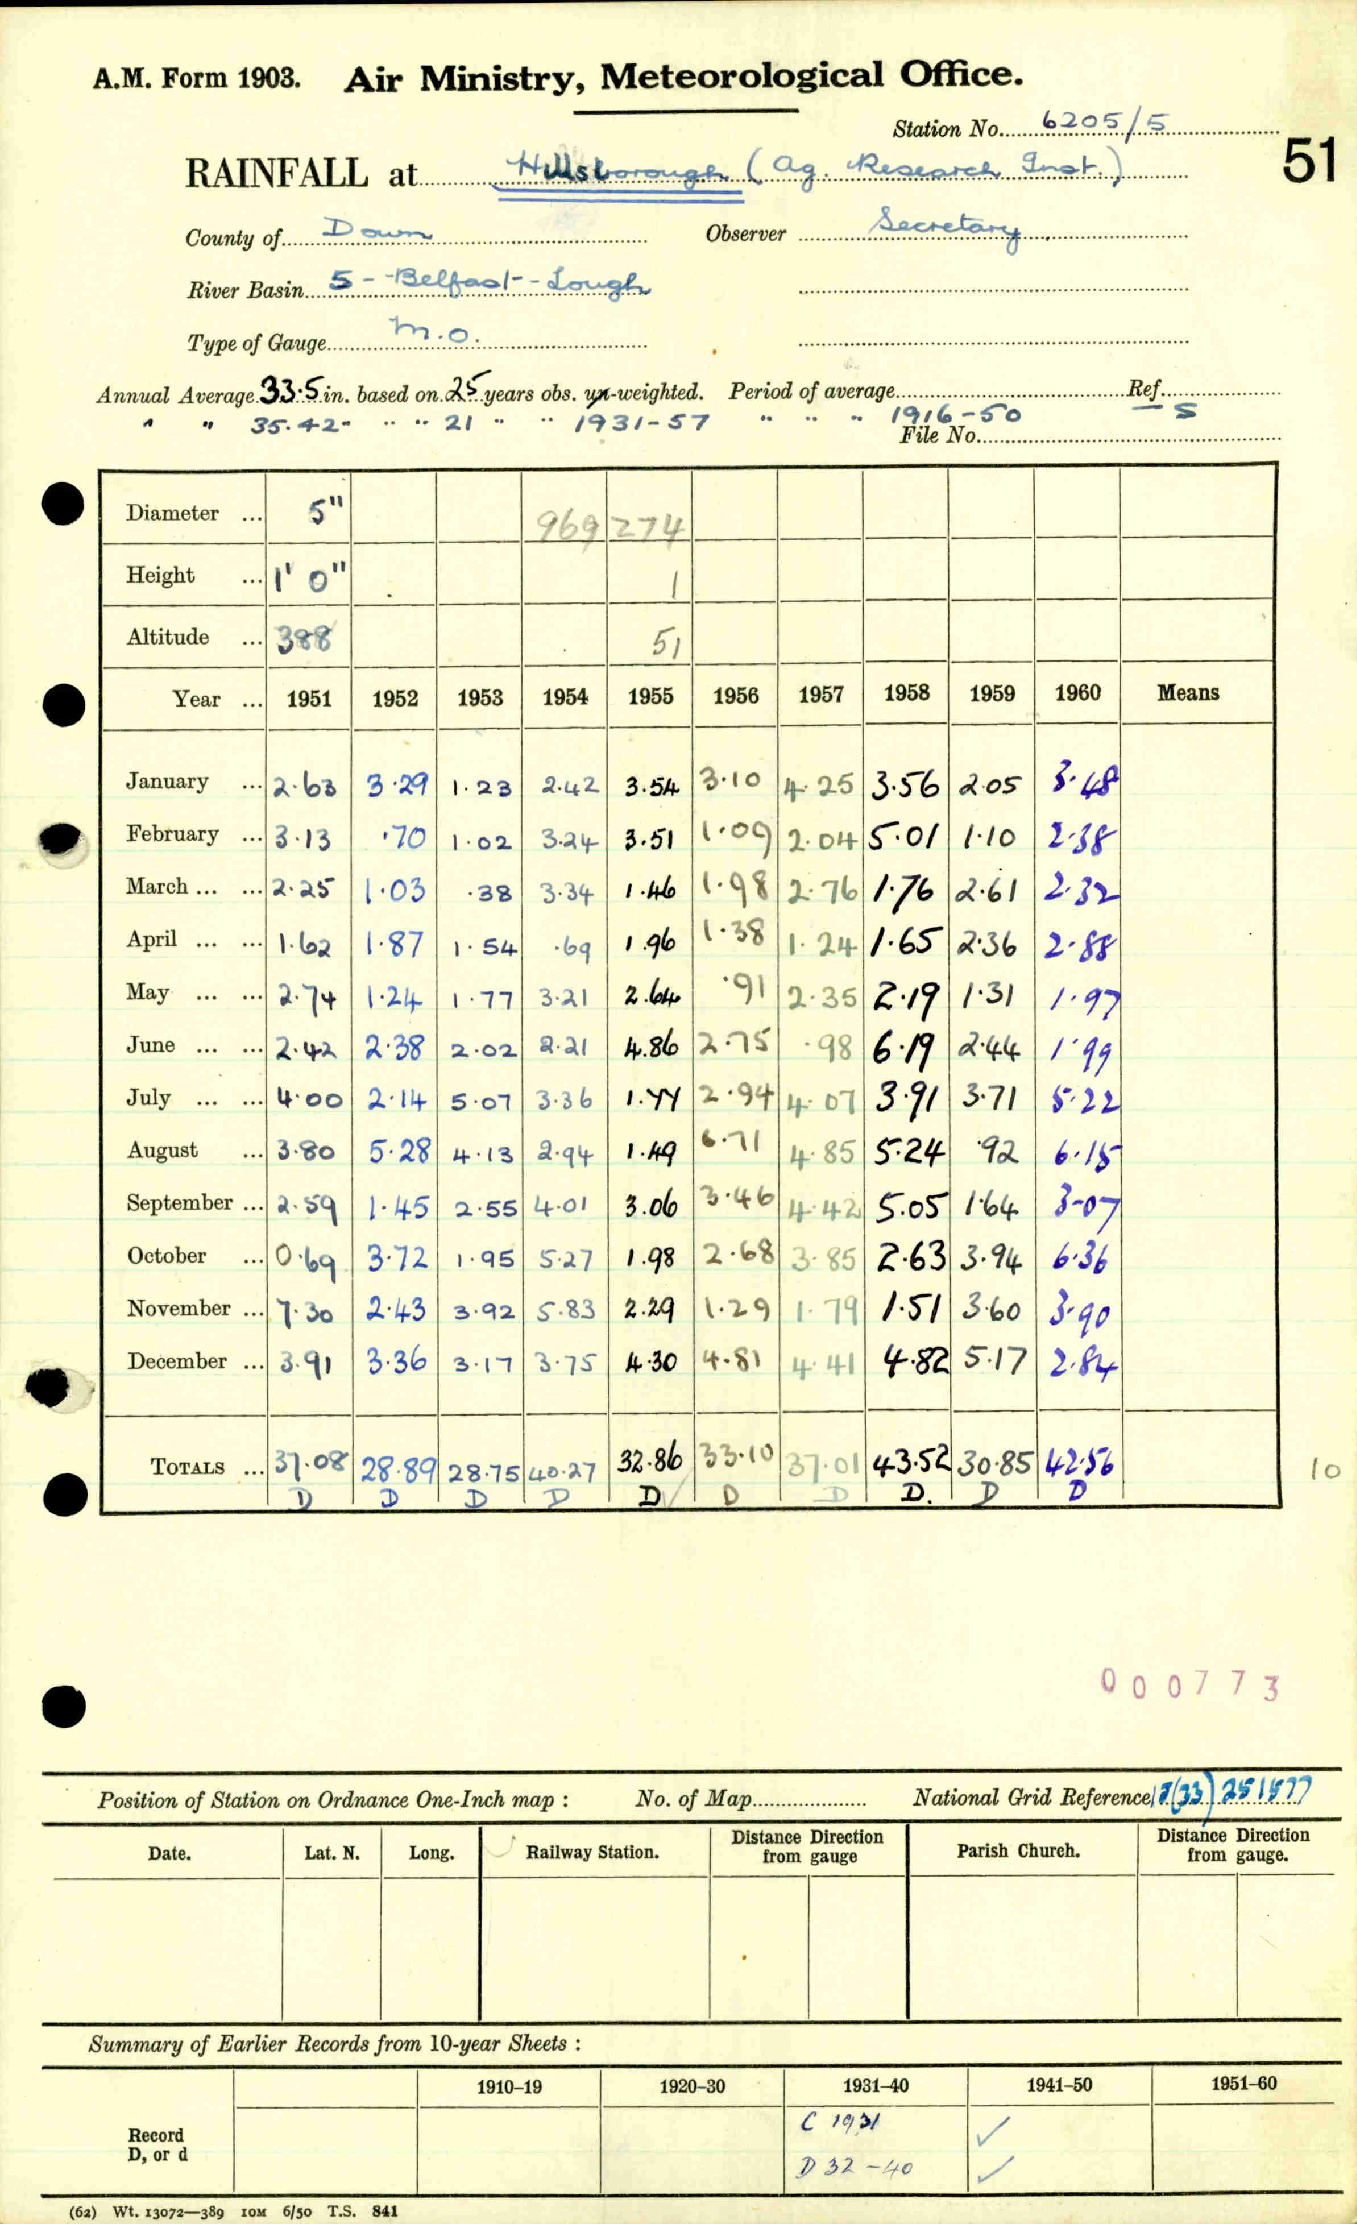 A.M. Form 1903. Air Ministry, Meteorological Office.
Station No. 6205/5
51
RAINFALL at Hillsborough (Ag. Research Inst.)
County of Down Observer Secretary
River Basin 5 - Belfast - Lough
Type of Gauge M.O.
Annual Average 33.5 in. based on 25 years obs. un-weighted. Period of average Ref.
" " 35.42 " " 21 " " 1931-57 " " " 1916-50 - S
File No.
Diameter ... 5" 969 274
Height ... 1' 0" 1
Altitude ... 388 51
Year ... 1951 1952 1953 1954 1955 1956 1957 1958 1959 1960 Means
January ... 2.63 3.29 1.23 2.42 3.54 3.10 4.25 3.56 2.05 3.48
February ... 3.13 .70 1.02 3.24 3.51 1.09 2.04 5.01 1.10 2.38
March ... ... 2.25 1.03 .38 3.34 1.46 1.98 2.76 1.76 2.61 2.32
April ... ... 1.62 1.87 1.54 .69 1.96 1.38 1.24 1.65 2.36 2.88
May ... ... 2.74 1.24 1.77 3.21 2.64 .91 2.35 2.19 1.31 1.97
June ... ... 2.42 2.38 2.02 2.21 4.86 2.75 .98 6.19 2.44 1.99
July ... ... 4.00 2.14 5.07 3.36 1.77 2.94 4.07 3.91 3.71 5.22
August ... 3.80 5.28 4.13 2.94 1.49 6.71 4.85 5.24 .92 6.15
September ... 2.59 1.45 2.55 4.01 3.06 3.46 4.42 5.05 1.64 3.07
October ... 0.69 3.72 1.95 5.27 1.98 2.68 3.85 2.63 3.94 6.36
November ... 7.30 2.43 3.92 5.83 2.29 1.29 1.79 1.51 3.60 3.90
December ... 3.91 3.36 3.17 3.75 4.30 4.81 4.41 4.82 5.17 2.84
TOTALS ... 37.08 28.89 28.75 40.27 32.86 33.10 37.01 43.52 30.85 42.56 10
D D D D D ✓ D D D. D D
000773
Position of Station on Ordnance One-Inch map : No. of Map National Grid Reference (33) 251577
Date. Lat. N. Long. Railway Station. Distance Direction from gauge Parish Church. Distance Direction from gauge.
Summary of Earlier Records from 10-year Sheets :
1910–19 1920–30 1931–40 1941–50 1951–60
Record D, or d
C 1931 ✓
D 32 - 40 ✓
(62) Wt. 13072—389 10M 6/50 T.S. 841